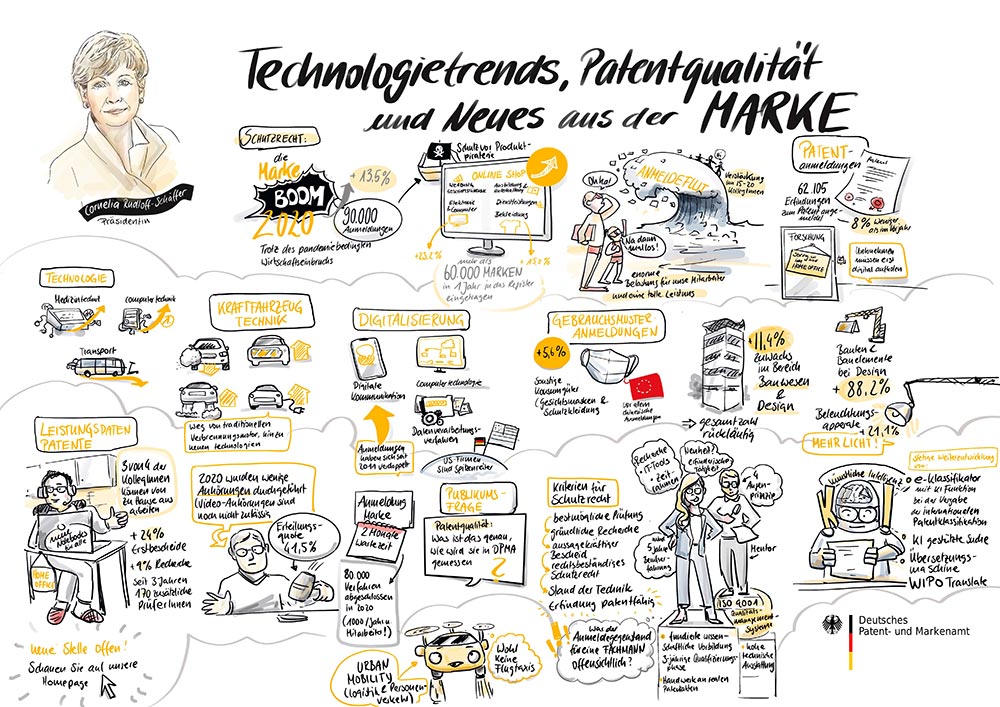 Technologietrends, Patentqualität
und Neues aus der MARKE
Cornelia Rudloff-Schäffer
Präsidentin
SCHUTZRECHT:
die
Marke
BOOM
2020
+13,5%
90.000
Anmeldungen
Trotz des pandemiebedingten
Wirtschaftseinbruchs
Schutz vor Produkt-
piraterie
ONLINE SHOP
WERBUNG
GESCHÄFTSFÜHRUNG
Ausbildung &
Unterhaltung
Elektronik
& Computer
Dienstleistungen
Bekleidung
+25,2%
+15,0%
mehr als
60.000 MARKEN
in 1 Jahr in das Register
eingetragen
Oh ha!
Na dann
mal los!
ANMELDEFLUT
Verstärkung
um 15-20
KollegInnen
enorme
Belastung für unse Mitarbeiter
und eine tolle Leistung
PATENT-
anmeldungen
Patent
62.105
Erfindungen
zum Patent ange-
meldet
8% weniger
als im Vorjahr
FORSCHUNG
Sorry wir
sind im
HOME OFFICE
Unternehmen
müssen erst
digital aufholen
TECHNOLOGIE
Medizintechnik
Computertechnik
Transport
KRAFTFAHRZEUG
TECHNIK
weg von traditionellen
Verbrennungsmotor, hin zu
neuen Technologien
DIGITALISIERUNG
Digitale
Kommunikation
Computertechnologie
Datenverarbeitungs-
verfahren
Anmeldungen
haben sich seit
2011 verdoppelt
US-Firmen
sind Spitzenreiter
GEBRAUCHSMUSTER
ANMELDUNGEN
+5,6%
Sonstige
Konsumgüter
(Gesichtsmasken &
Schutzkleidung
Vor allem
chinesische
Anmeldungen
+11,4%
Zuwachs
im Bereich
Bauwesen
&
Design
→ gesamtzahl
rückläufig
Bauten &
Bauelemente
bei Design
+ 88,2%
Beleuchtungs-
apparate
+21,1%
MEHR LICHT!
LEISTUNGSDATEN
PATENTE
3 von 4 der
KollegInnen
können von
zu Hause aus
arbeiten
mehr
Notebooks
für alle
HOME
OFFICE
+24%
Erstbescheide
+9% Recherche
Seit 3 Jahren
170 zusätzliche
PrüferInnen
2020 wurden wenige
Anhörungen durchgeführt
(Video-Anhörungen sind
noch nicht zulässig
Erteilungs-
quote
41,5%
Anmeldung
Marke
2 Monate
Wartezeit
80.000
Verfahren
abgeschlossen
in 2020
(1000/Jahr
Mitarbeiter!)
PUBLIKUMS-
FRAGE
Patentqualität:
Was ist das genau,
wie wird sie im DPMA
gemessen
?
Kriterien für
Schutzrecht
bestmögliche Prüfung
gründliche Recherche
aussagekräftiger
Bescheid
rechtsbeständiges
Schutzrecht
Stand der Technik
Erfindung patentfähig
Recherche
+ IT-Tools
+ Zeit-
rahmen
Neuheit?
erfinderische
Tätigkeit?
4
Augen-
prinzip
mind.
5 Jahre
Berufs-
erfahrung
Mentor
ISO 9001
Qualitäts-
management-
System
fundierte wissen-
schaftliche Vorbildung
3 jährige Qualifizierungs-
phase
Handwerk an realen
Patentakten
hohe
technische
Ausstattung
Stetige Weiterentwicklung
von:
Künstliche Intelligenz
KI
e-Klassifikator
mit KI Funktion
bei der Vergabe
der internationalen
Patentklassifikation
KI gestützte Suche
Übersetzungs-
maschine
WIPO Translate
Neue Stelle offen!
Schauen Sie auf unsere
Homepage
URBAN
MOBILITY
(Logistik & Personen-
verkehr)
Wohl
keine
Flugtaxis
!!
War der
Anmeldegegenstand
für eine FACHMANN
offensichtlich?
Deutsches
Patent- und Markenamt